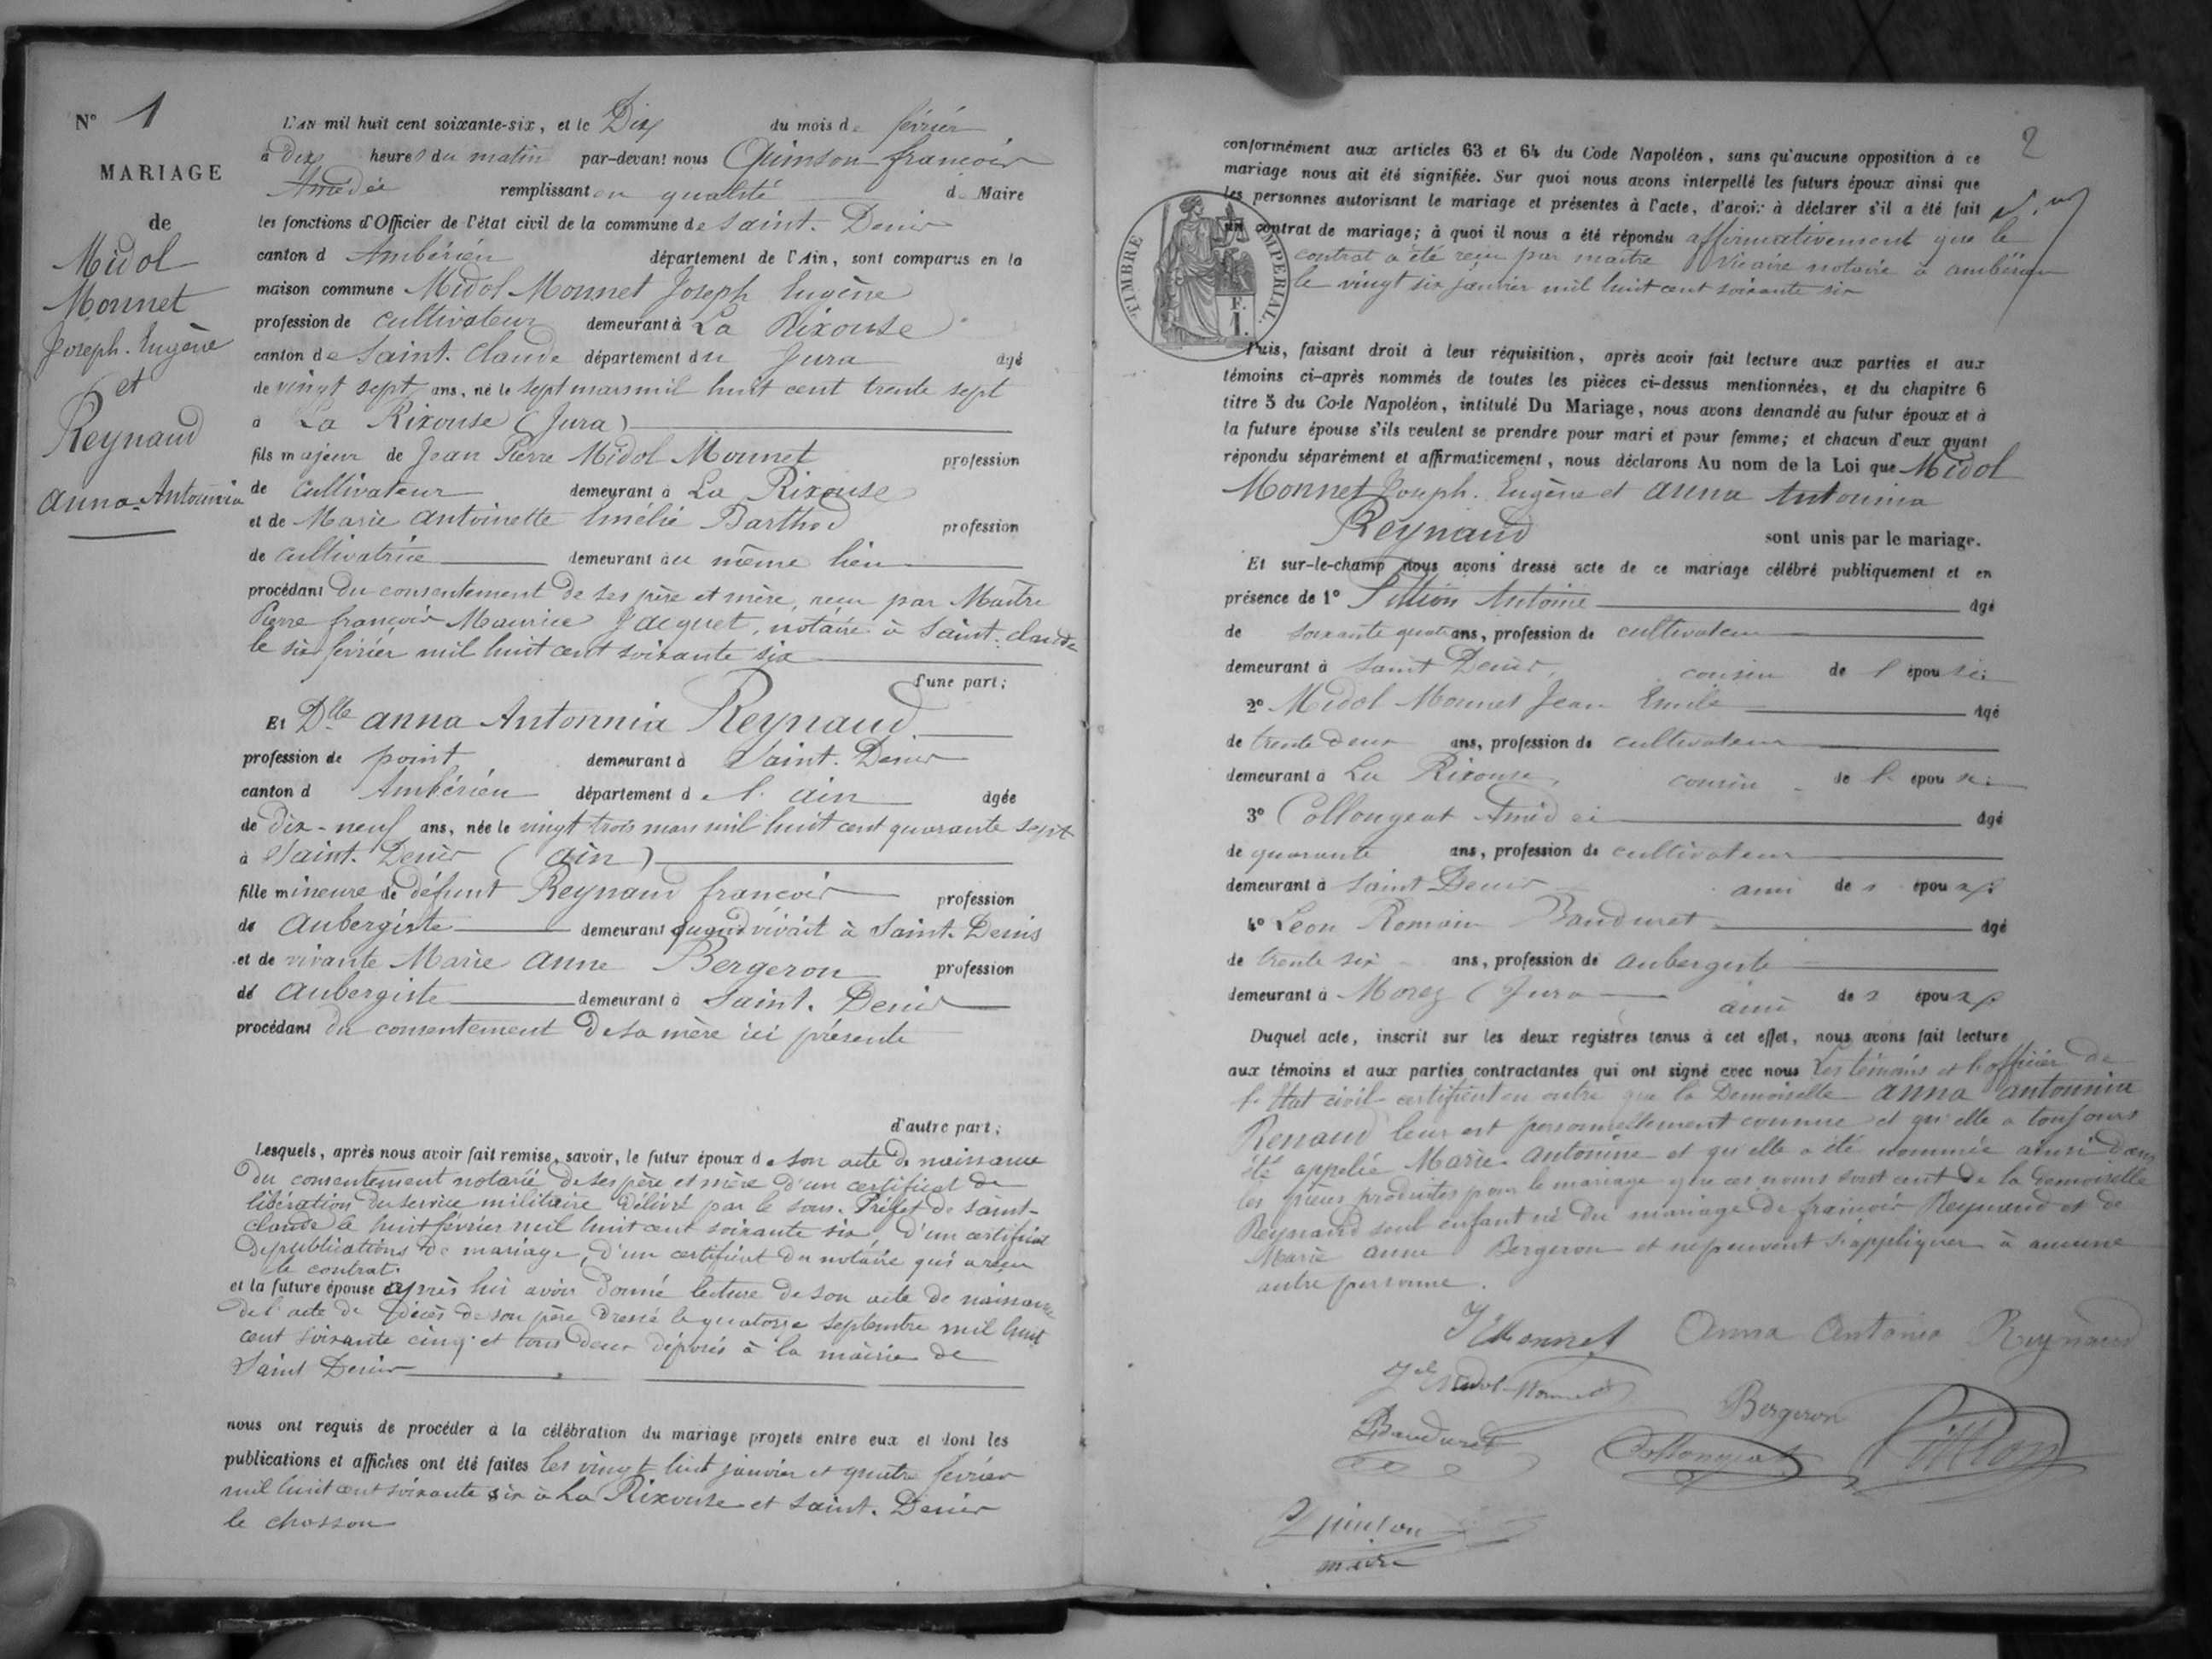 N° 1
MARIAGE
de
Midol
Monnet
Joseph. Eugène
et
Reynaud
anna-Antonnia
L'AN mil huit cent soixante-six, et le Dix du mois de février
à dix heures du matin par-devant nous Quinson françois
Amédée remplissant en qualité de Maire
les fonctions d'Officier de l'état civil de la commune de Saint. Denis
canton d Ambérieu département de l'Ain, sont comparus en la
maison commune Midol Monnet Joseph Eugène
profession de cultivateur demeurant à La Rixouse
canton de Saint. Claude département du Jura âgé
de vingt sept ans, né le sept mars mil huit cent trente sept
à La Rixouse (Jura)
fils majeur de Jean Pierre Midol Monnet profession
de cultivateur demeurant à La Rixouse
et de Marie Antoinette Emélie Barthod profession
de cultivatrice demeurant au même lieu
procédant du consentement de ses père et mère, reçu par Maître
Pierre françois Maurice Jacquet, notaire à Saint. claude
le six février mil huit cent soixante six
d'une part;
Et Dlle anna Antonnia Reynaud
profession de point demeurant à Saint. Denis
canton d Ambérieu département de l'ain âgée
de dix-neuf ans, née le vingt trois mars mil huit cent quarante sept
à Saint. Denis (ain)
fille mineure de défunt Reynaud françois profession
de Aubergiste demeurant quand vivait à Saint. Denis
et de vivante Marie Anne Bergeron profession
de Aubergiste demeurant à Saint. Denis
procédant du consentement de sa mère ici présente
d'autre part;
Lesquels, après nous avoir fait remise, savoir, le futur époux de son acte de naissance
du consentement notarié de ses père et mère d'un certificat de
libération du service militaire délivré par le sous. Préfet de Saint-
claude le huit février mil huit cent soixante six, d'un certificat
de publications de mariage, d'un certificat du notaire qui a reçu
le contrat.
et la future épouse après lui avoir donné lecture de son acte de naissance
de l'acte de décès de son père dressé le quatorze septembre mil huit
cent soixante cinq et tous deux déposés à la mairie de
Saint Denis
nous ont requis de procéder à la célébration du mariage projeté entre eux et dont les
publications et affiches ont été faites les vingt huit janvier et quatre février
mil huit cent soixante six à La Rixouse et Saint. Denis
le chosson
2
conformément aux articles 63 et 64 du Code Napoléon, sans qu'aucune opposition à ce
mariage nous ait été signifiée. Sur quoi nous avons interpellé les futurs époux ainsi que
les personnes autorisant le mariage et présentes à l'acte, d'avoir à déclarer s'il a été fait
un contrat de mariage; à quoi il nous a été répondu affirmativement que le
contrat a été reçu par maître Vicaire notaire à ambérieu
le vingt six janvier mil huit cent soixante six
TIMBRE IMPERIAL.
F.
1.
Puis, faisant droit à leur réquisition, après avoir fait lecture aux parties et aux
témoins ci-après nommés de toutes les pièces ci-dessus mentionnées, et du chapitre 6
titre 5 du Code Napoléon, intitulé Du Mariage, nous avons demandé au futur époux et à
la future épouse s'ils veulent se prendre pour mari et pour femme; et chacun d'eux ayant
répondu séparément et affirmativement, nous déclarons Au nom de la Loi que Midol
Monnet Joseph. Eugène et anna Antonnia
Reynaud sont unis par le mariage.
Et sur-le-champ nous avons dressé acte de ce mariage célébré publiquement et en
présence de 1° Pittion Antoine âgé
de soixante quatre ans, profession de cultivateur
demeurant à Saint Denis, cousin de l'épouse;
2° Midol Monnet Jean Emile âgé
de trente deux ans, profession de cultivateur
demeurant à La Rixouse, cousin de l'épou
3° Collongeat Amédéi âgé
de quarante ans, profession de cultivateur
demeurant à Saint Denis ami de s époux;
4° Léon Romain Bauduret âgé
de trente six ans, profession de aubergiste
demeurant à Morez (Jura ami de s époux;
Duquel acte, inscrit sur les deux registres tenus à cet effet, nous avons fait lecture
aux témoins et aux parties contractantes qui ont signé avec nous Les témoins et l'officier de
l'état civil certifient en outre que la Demoiselle anna antonnia
Renaud leur est personnellement connue et qu'elle a toujours
été appelée Marie-Antonine et qu'elle a été nommée ainsi dans
les pièces produites pour le mariage que ces noms sont ceux de la demoiselle
Reynaud seul enfant né du mariage de françois Reynaud et de
Marie anne Bergeron et ne peuvent s'appliquer à aucune
autre personne.
JEMonnet Anna Antonia Reynaud
Jel Midol-Monnet
Bauduret Bergeron
Collongeat Pittion
Quinson
maire